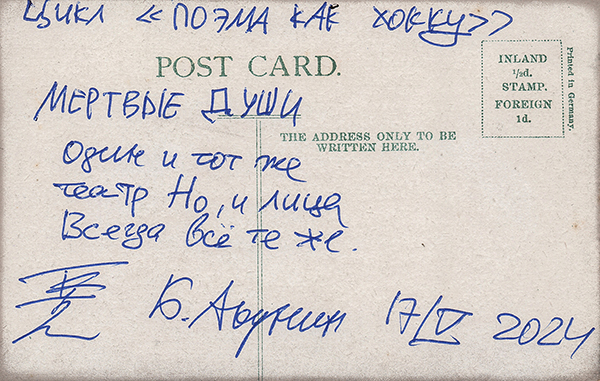 ЦИКЛ «ПОЭМА КАК ХОККУ»
POST CARD.
INLAND
½d.
STAMP.
FOREIGN
1d.
Printed in Germany.
МЕРТВЫЕ ДУШИ
THE ADDRESS ONLY TO BE
WRITTEN HERE.
Один и тот же
театр Но, и лица
Всегда всё те же.
Б. Акунин 17/V 2024